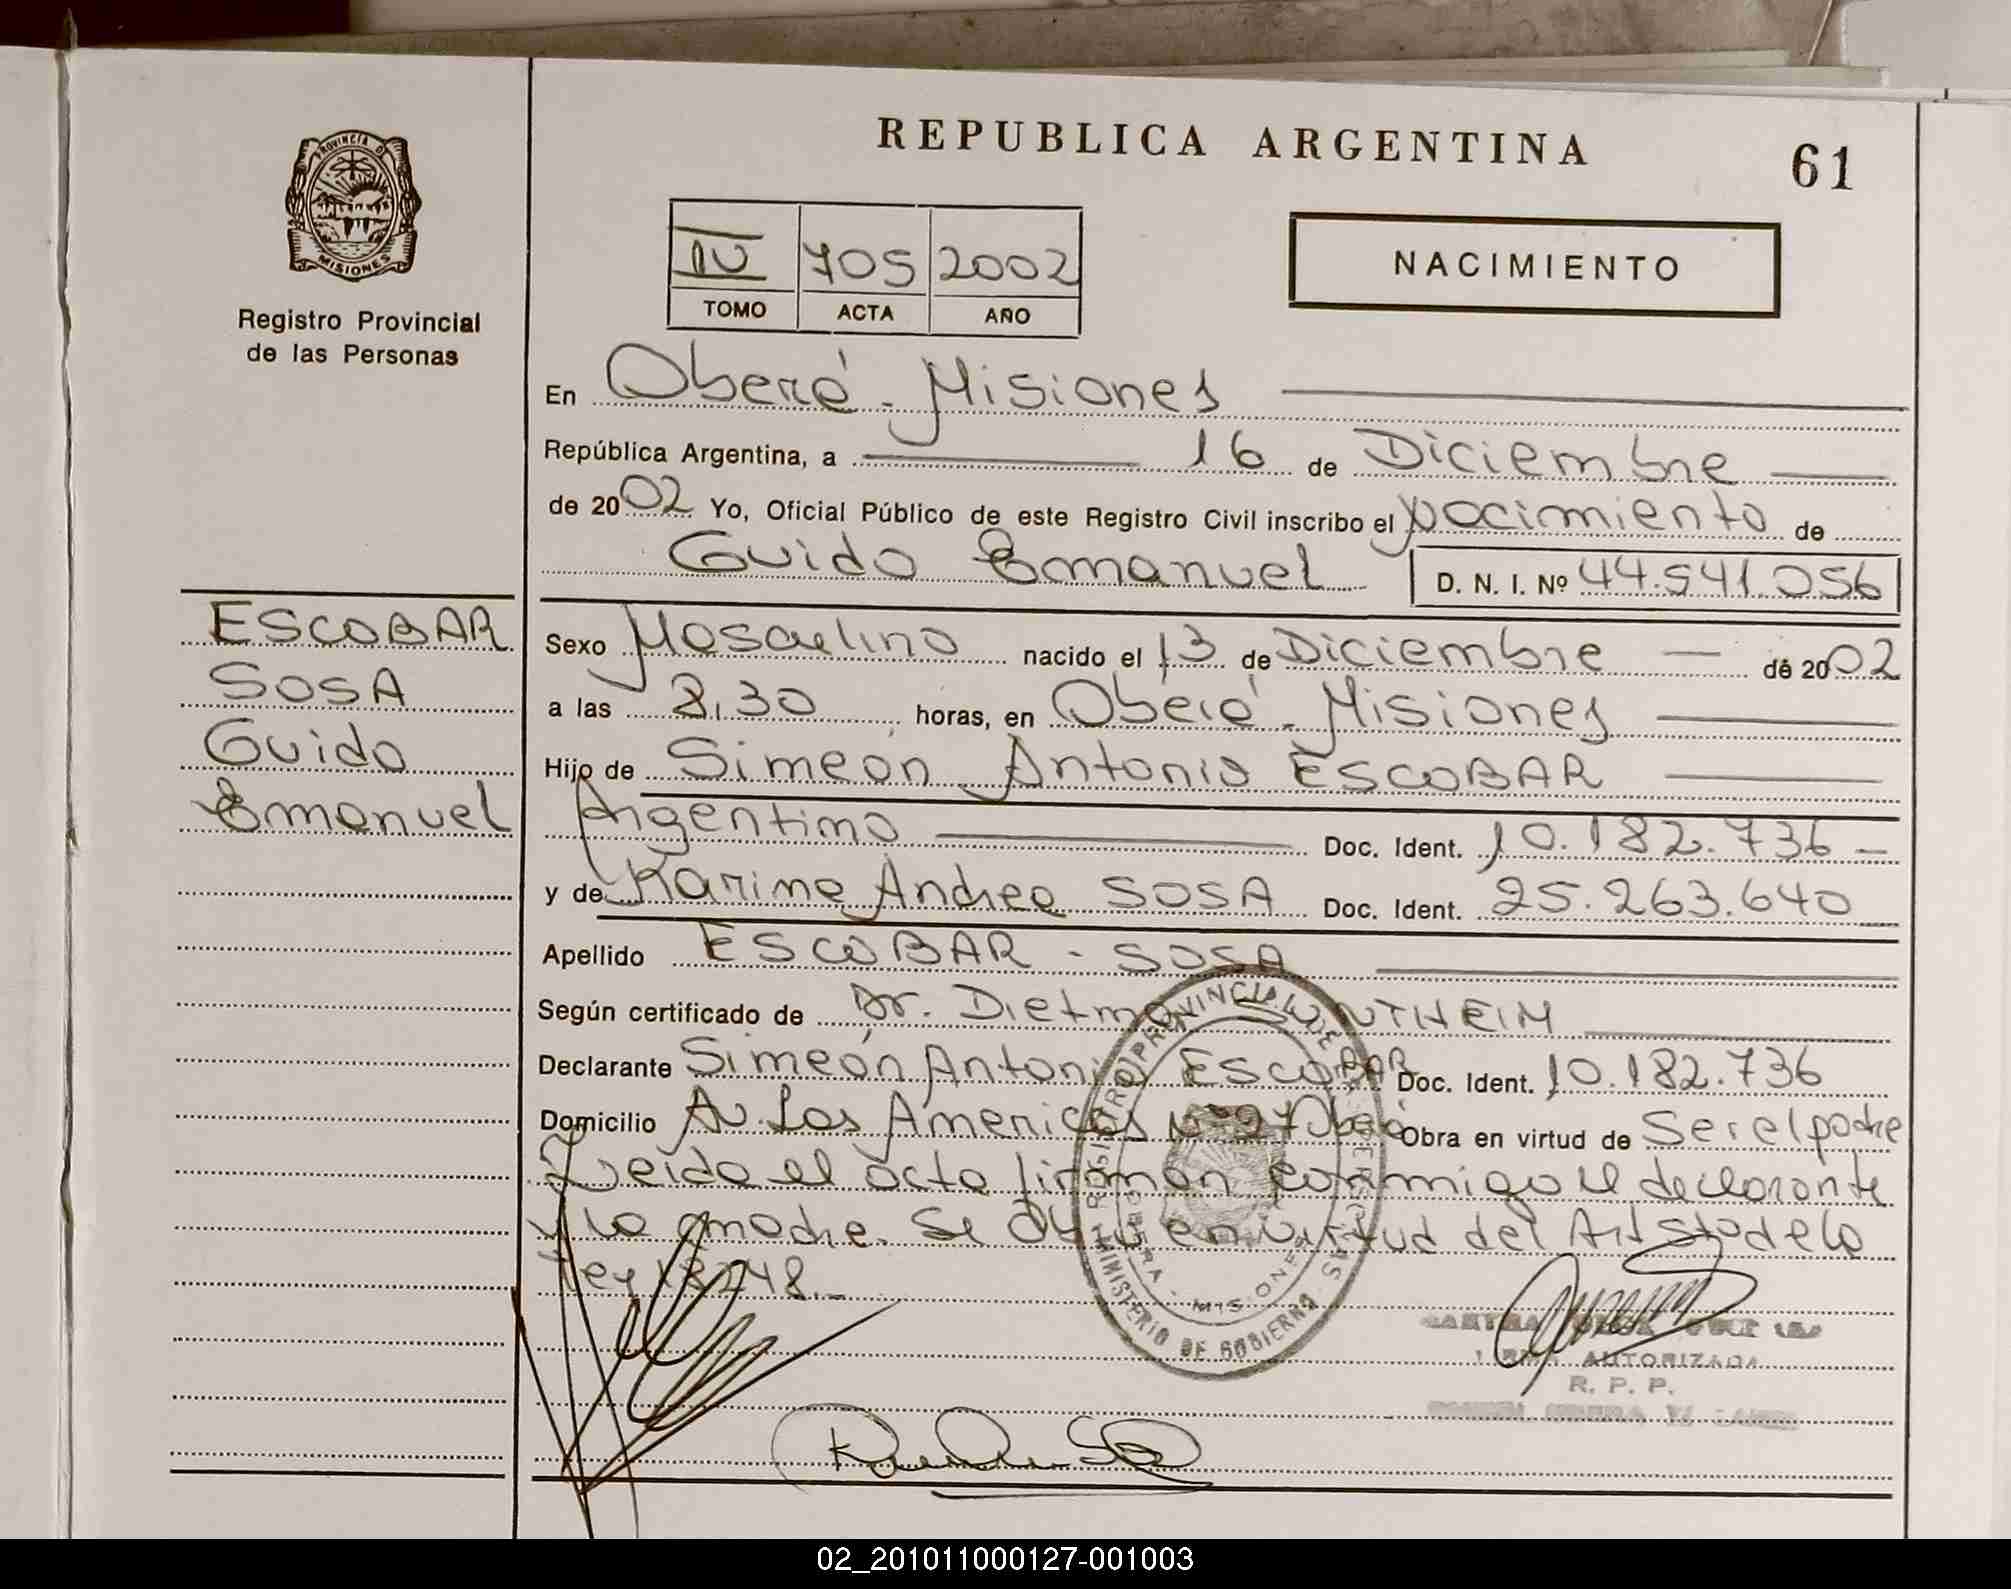 REPUBLICA ARGENTINA
61
PROVINCIA DE
MISIONES
Registro Provincial
de las Personas
IV 705 2002
TOMO ACTA AÑO
NACIMIENTO
En Oberá - Misiones
República Argentina, a 16 de Diciembre
de 2002 Yo, Oficial Público de este Registro Civil inscribo el nacimiento de
Guido Emanuel D. N. I. Nº 44.541.056
ESCOBAR
SOSA
Guido
Emanuel
Sexo Masculino nacido el 13 de Diciembre de 2002
a las 8,30 horas, en Oberá - Misiones
Hijo de Simeón Antonio ESCOBAR
Argentino Doc. Ident. 10.182.736
y de Karina Andrea SOSA Doc. Ident. 25.263.640
Apellido ESCOBAR - SOSA
Según certificado de Dr. Dietmar
Declarante Simeón Antonio ESCOBAR Doc. Ident. 10.182.736
Domicilio Av. Las Americas Nº 97 Oberá Obra en virtud de Ser el padre
Leida el acta firman conmigo el declarante
y la madre. Se obra en virtud del Art 5to de la
Ley 18248.-
REGISTRO PROVINCIAL DE LAS PERSONAS
OBERA - MISIONES
MINISTERIO DE GOBIERNO
FIRMA AUTORIZADA
R. P. P.
02_201011000127-001003